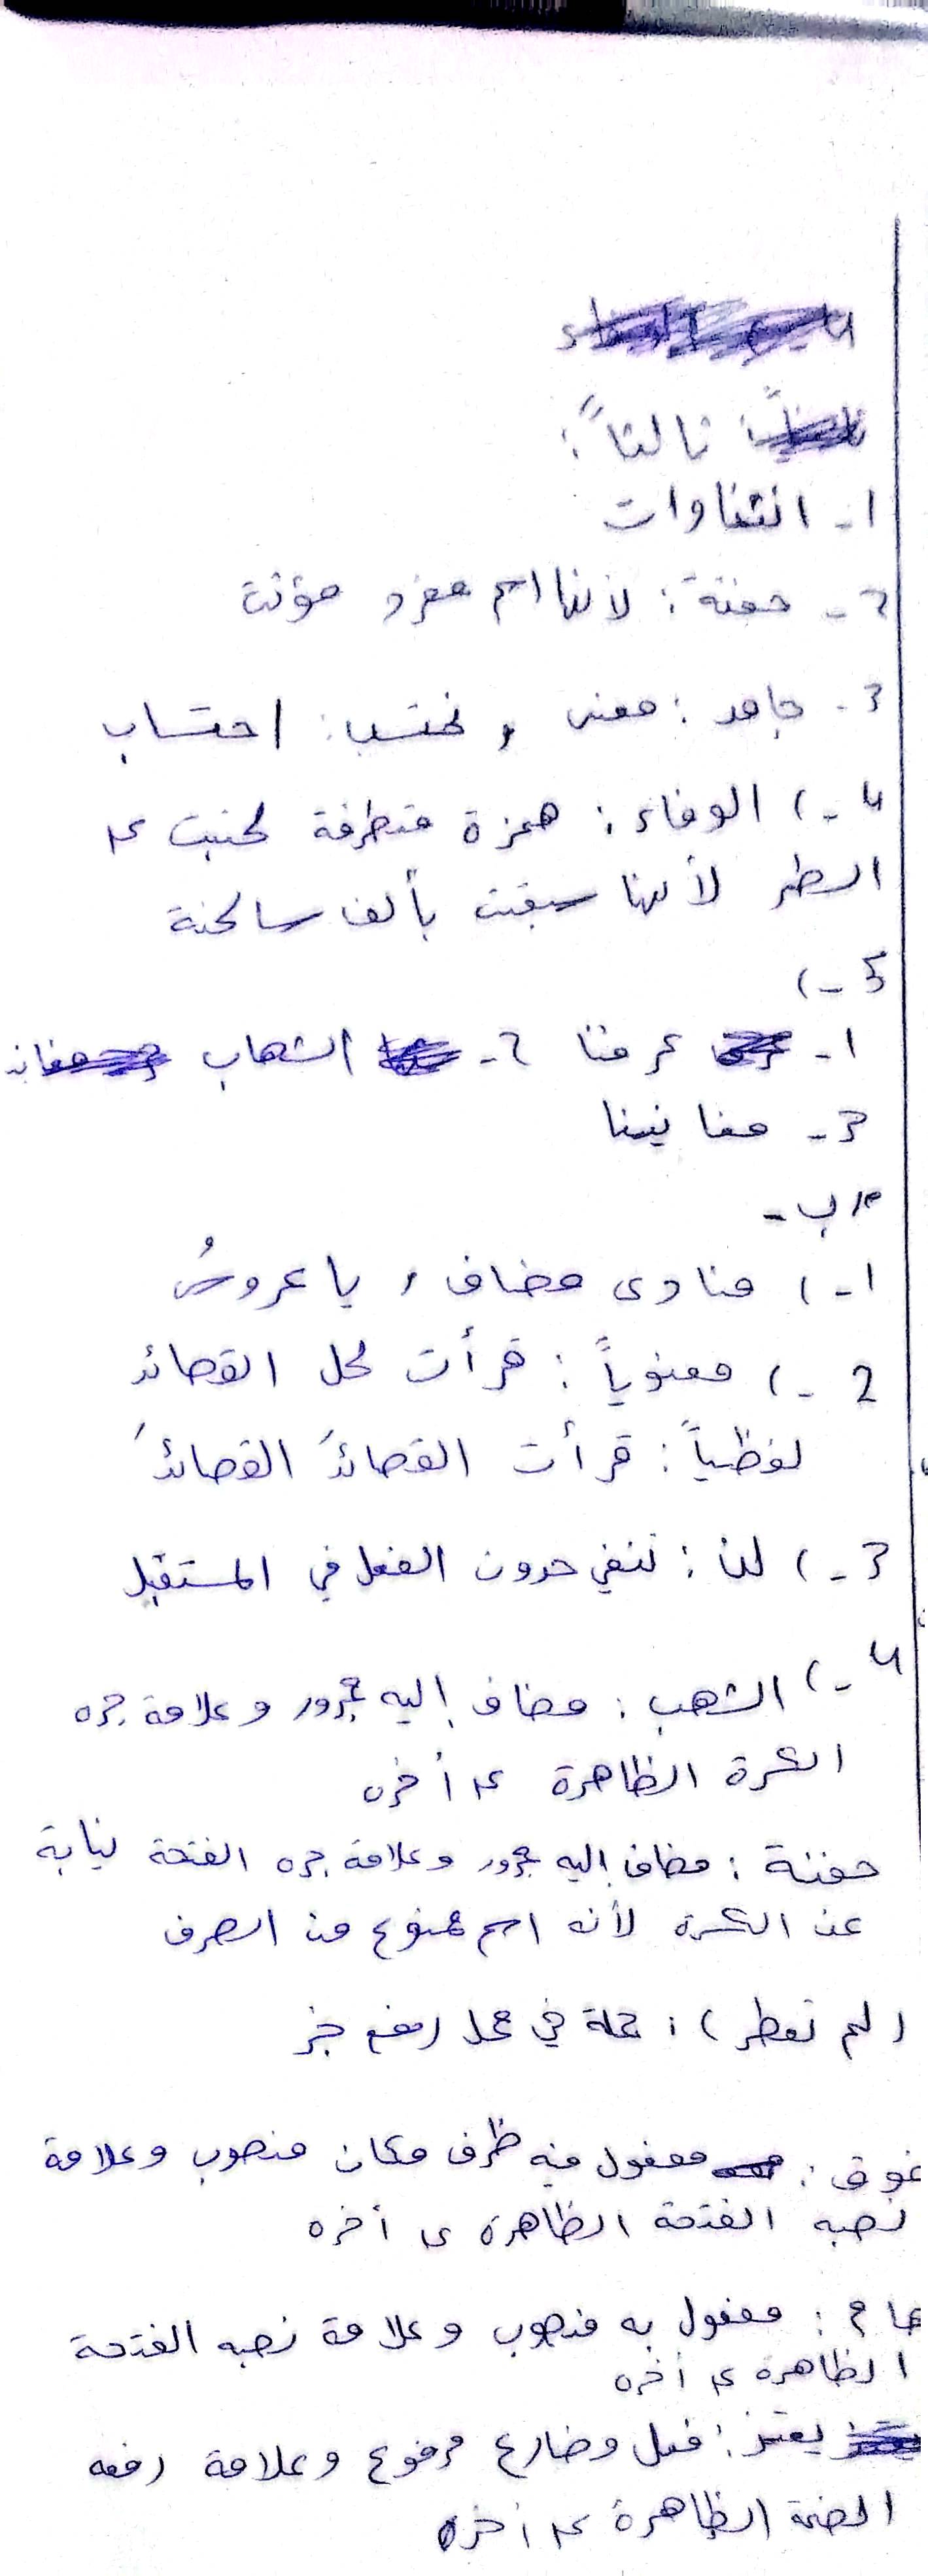 ثالثاً:
1- انتفاوات
2- حفنة: لأنها اسم مفرد مؤنث
3- جامد: معنى , نحتسب: احتساب
4-) الوفاء: همزة متطرفة كتبت على
السطر لأنها سبقت بألف ساكنة
5-)
1- عرفنا 2- الشهاب
3- مغانينا
ب-
1-) منادى مضاف , يا عروسُ
2-) معنوياً: قرأت كل القصائد
لفظياً: قرأت القصائدَ القصائدَ
3-) لن: تنفي حدوث الفعل في المستقبل
4-) الشهب: مضاف إليه مجرور وعلامة جره
الكسرة الظاهرة على أخره
حفنة: مضاف إليه مجرور وعلامة جره الفتحة نيابة
عن الكسرة لأنه اسم ممنوع من الصرف
(لم تمطر): جملة في محل رفع خبر
فوق: مفعول فيه ظرف مكان منصوب وعلامة
نصبه الفتحة الظاهرة على أخره
هام: مفعول به منصوب وعلامة نصبه الفتحة
الظاهرة على أخره
يعتز: فعل مضارع مرفوع وعلامة رفعه
الضمة الظاهرة على أخره